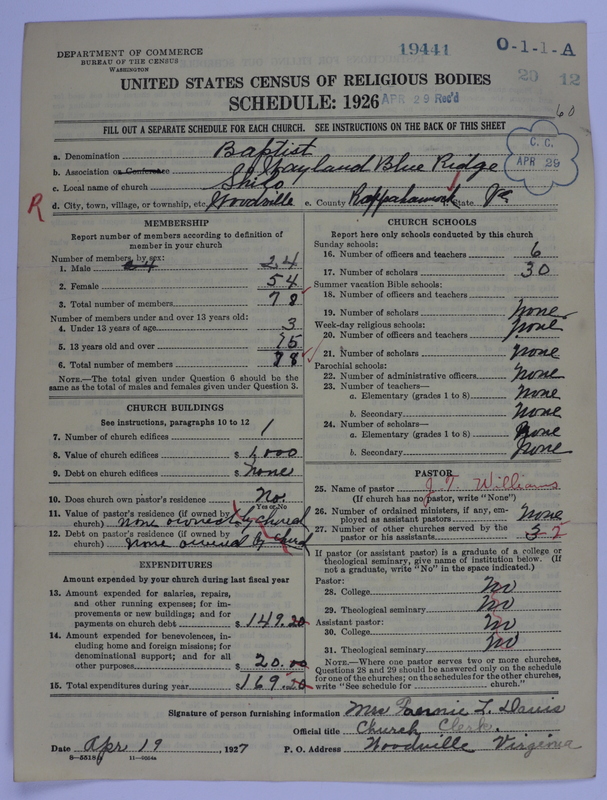 DEPARTMENT OF COMMERCE
BUREAU OF THE CENSUS
WASHINGTON
19441
O-1-1-A
20 12
UNITED STATES CENSUS OF RELIGIOUS BODIES
SCHEDULE: 1926
APR 29 Rec'd
60
FILL OUT A SEPARATE SCHEDULE FOR EACH CHURCH. SEE INSTRUCTIONS ON THE BACK OF THIS SHEET
C. C.
APR 29
a. Denomination Baptist
b. Association or Conference Wayland Blue Ridge
c. Local name of church Shilo
R
d. City, town, village, or township, etc. Woodville e. County Rappahannock State Va
MEMBERSHIP
Report number of members according to definition of
member in your church
Number of members, by sex:
1. Male 24 24
2. Female 54
3. Total number of members 78
Number of members under and over 13 years old:
4. Under 13 years of age 3
5. 13 years old and over 75
6. Total number of members 78
NOTE.—The total given under Question 6 should be
the same as the total of males and females given under Question 3.
CHURCH BUILDINGS
See instructions, paragraphs 10 to 12
7. Number of church edifices 1
8. Value of church edifices $ 1,000
9. Debt on church edifices $ none
10. Does church own pastor's residence No.
Yes or No
11. Value of pastor's residence (if owned by
church) none owned by church
12. Debt on pastor's residence (if owned by
church) none owned by church
EXPENDITURES
Amount expended by your church during last fiscal year
13. Amount expended for salaries, repairs,
and other running expenses; for im-
provements or new buildings; and for
payments on church debt $ 149.20
14. Amount expended for benevolences, in-
cluding home and foreign missions; for
denominational support; and for all
other purposes $ 20.00
15. Total expenditures during year $ 169.20
CHURCH SCHOOLS
Report here only schools conducted by this church
Sunday schools:
16. Number of officers and teachers 6
17. Number of scholars 30
Summer vacation Bible schools:
18. Number of officers and teachers
19. Number of scholars none
Week-day religious schools:
20. Number of officers and teachers none
21. Number of scholars none
Parochial schools:
22. Number of administrative officers none
23. Number of teachers—
a. Elementary (grades 1 to 8) none
b. Secondary none
24. Number of scholars—
a. Elementary (grades 1 to 8) none
b. Secondary none
PASTOR
25. Name of pastor J. T. Williams
(If church has no pastor, write "None")
26. Number of ordained ministers, if any, em-
ployed as assistant pastors none
27. Number of other churches served by the
pastor or his assistants 3 2
If pastor (or assistant pastor) is a graduate of a college or
theological seminary, give name of institution below. (If
not a graduate, write "No" in the space indicated.)
Pastor:
28. College No
29. Theological seminary No
Assistant pastor:
30. College No
31. Theological seminary No
NOTE.—Where one pastor serves two or more churches,
Questions 28 and 29 should be answered only on the schedule
for one of the churches; on the schedules for the other churches,
write "See schedule for ........ church."
Signature of person furnishing information Mrs Fannie L. Davis
Official title Church Clerk.
Date Apr 19, 1927 P. O. Address Woodville Virginia
8—5518